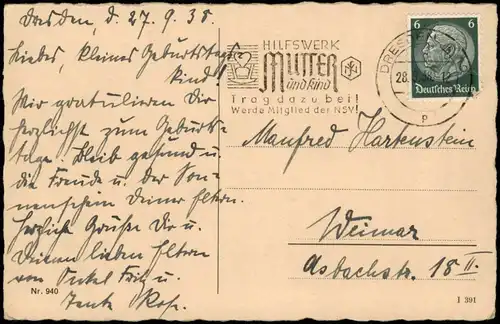 Dresden, d. 27.9.38.
Liebes, kleines Geburtstags-
kind!
Wir gratulieren Dir
herzlichst zum Geburts-
tage. Bleib gesund u.
die Freude u. der Son-
nenschein Deiner Eltern.
Herzliche Grüße Dir u.
Deinen lieben Eltern
von Onkel Fritz u.
Tante Rose.
Nr. 940
HILFSWERK
MUTTER
und Kind
Trag dazu bei!
Werde Mitglied der NSV!
DRESDEN
28.
P
6 6
Deutsches Reich
Manfred Hartenstein
Weimar
Asbachstr. 18 II.
I 391